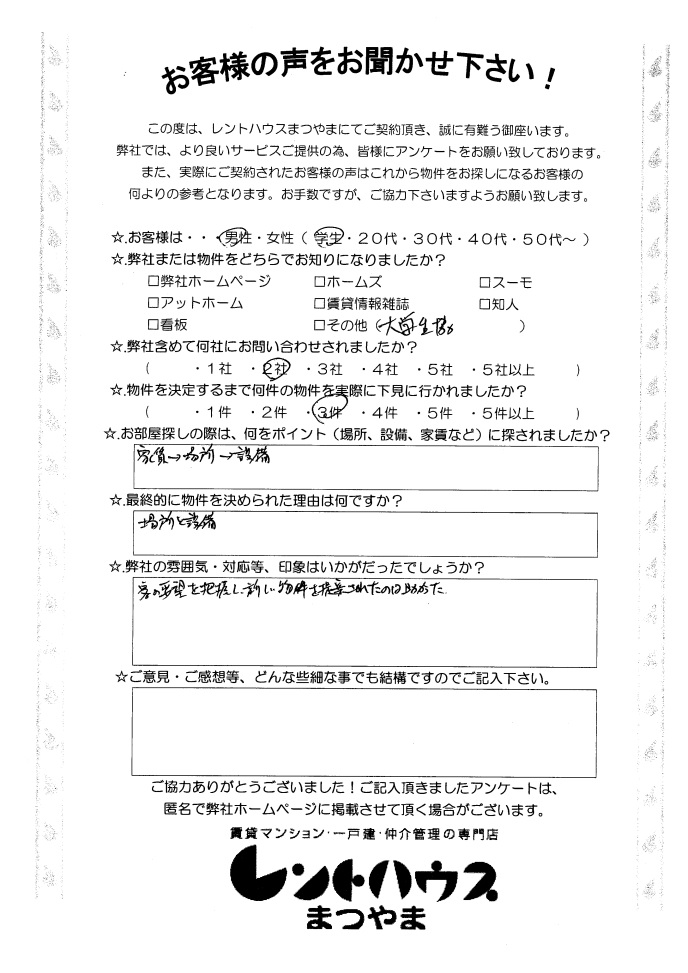 お客様の声をお聞かせ下さい！
この度は、レントハウスまつやまにてご契約頂き、誠に有難う御座います。
弊社では、より良いサービスご提供の為、皆様にアンケートをお願い致しております。
また、実際にご契約されたお客様の声はこれから物件をお探しになるお客様の
何よりの参考となります。お手数ですが、ご協力下さいますようお願い致します。
☆.お客様は・・・男性・女性（ 学生・２０代・３０代・４０代・５０代～ ）
☆.弊社または物件をどちらでお知りになりましたか？
□弊社ホームページ □ホームズ □スーモ
□アットホーム □賃貸情報雑誌 □知人
□看板 □その他（大学生協 ）
☆.弊社含めて何社にお問い合わせされましたか？
（ ・１社 ・２社 ・３社 ・４社 ・５社 ・５社以上 ）
☆.物件を決定するまで何件の物件を実際に下見に行かれましたか？
（ ・１件 ・２件 ・３件 ・４件 ・５件 ・５件以上 ）
☆.お部屋探しの際は、何をポイント（場所、設備、家賃など）に探されましたか？
家賃→場所→設備
☆.最終的に物件を決められた理由は何ですか？
場所と設備
☆.弊社の雰囲気・対応等、印象はいかがだったでしょうか？
客の要望を把握し、新しい物件を提案されたのは助かった
☆ご意見・ご感想等、どんな些細な事でも結構ですのでご記入下さい。
ご協力ありがとうございました！ご記入頂きましたアンケートは、
匿名で弊社ホームページに掲載させて頂く場合がございます。
賃貸マンション・一戸建・仲介管理の専門店
レントハウス
まつやま